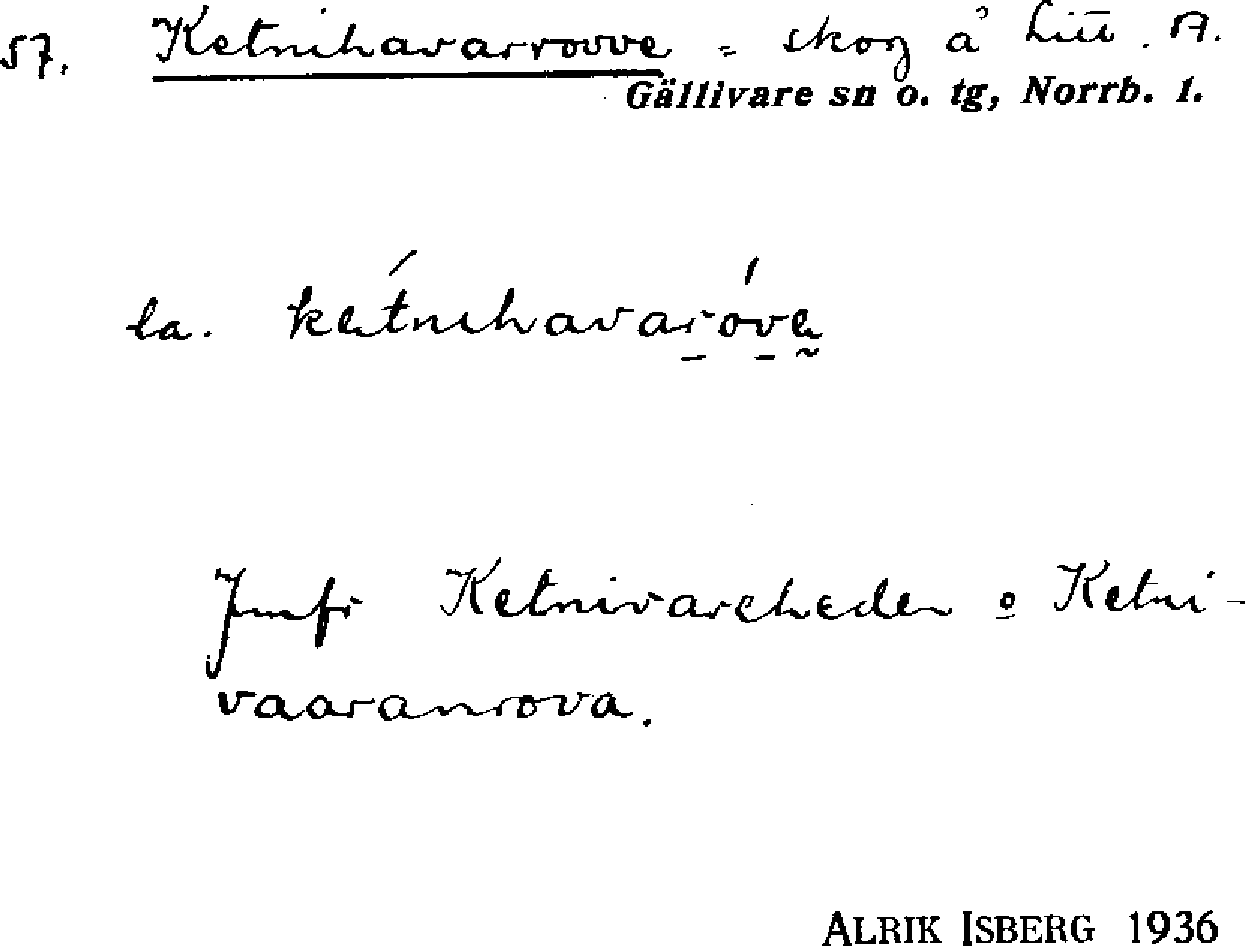 57. Ketnihavarrovve = skog å Litt. A.
Gällivare sn o. tg, Norrb. l.
la. ketnihavaróve
Jmfr Ketnivareheden o Ketni-
vaaranrova.
ALRIK ISBERG 1936